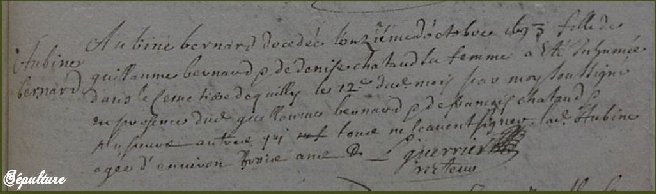 Aubine bernard decedée l'onzieme d'octobre 1693 fille de
Aubine
bernard
guillaume bernard & de denise chataud sa femme a été inhumée
dans le cemetiere de quilly le 12e dud. mois par moy soussigné
en presence dud. guillaume bernard & de francois chataud &
plusieurs autres qui tous ne scavent signer lad. Aubine
agee d'environ ans
guerrier
recteur
Sépulture